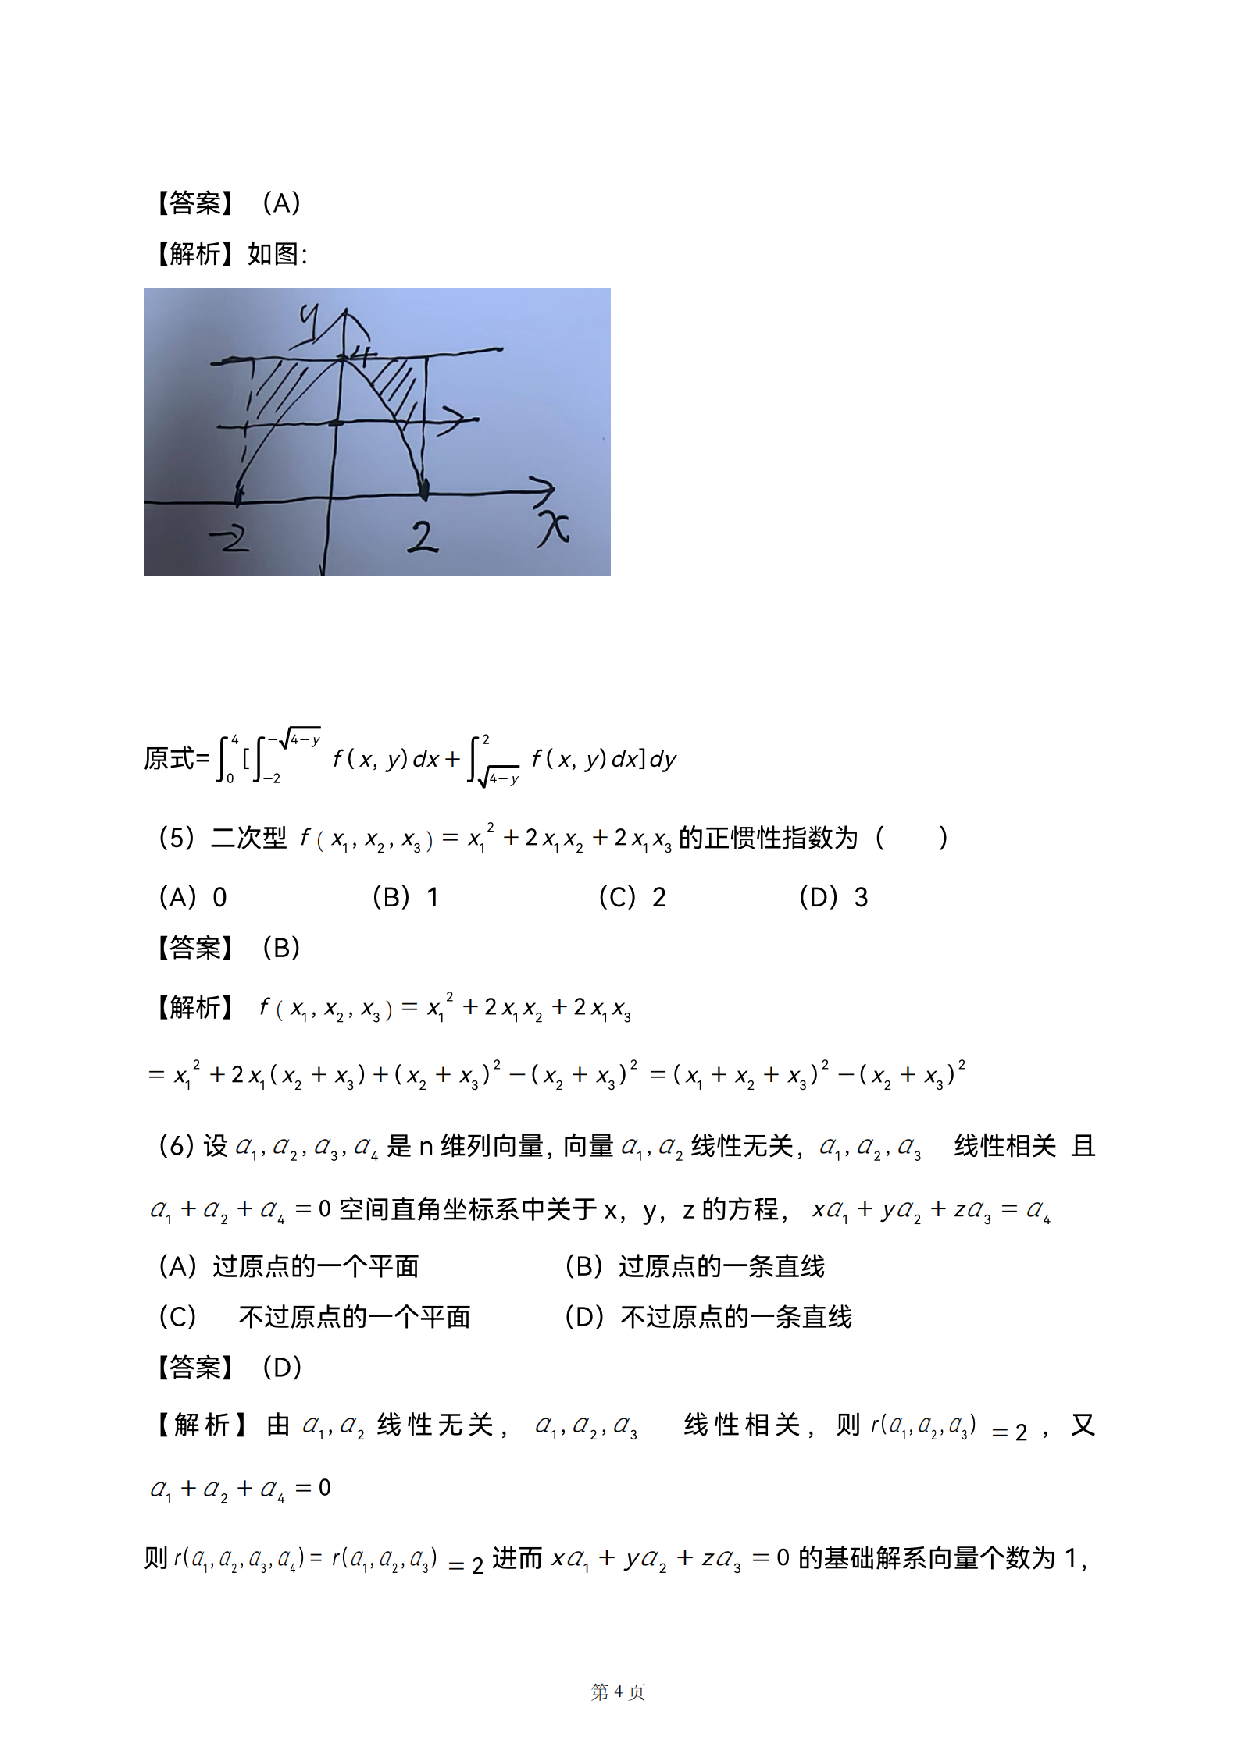 【答案】（A）
【解析】如图：
y
4
-2 2 x
原式=∫_0^4[∫_{-2}^{-√(4-y)} f(x, y)dx+∫_{√(4-y)}^2 f(x, y)dx]dy
（5）二次型 f(x₁, x₂, x₃) = x₁² + 2x₁x₂ + 2x₁x₃ 的正惯性指数为（ ）
（A）0 （B）1 （C）2 （D）3
【答案】（B）
【解析】 f(x₁, x₂, x₃) = x₁² + 2x₁x₂ + 2x₁x₃
= x₁² + 2x₁(x₂ + x₃) + (x₂ + x₃)² − (x₂ + x₃)² = (x₁ + x₂ + x₃)² − (x₂ + x₃)²
（6）设 α₁, α₂, α₃, α₄ 是 n 维列向量, 向量 α₁, α₂ 线性无关, α₁, α₂, α₃ 线性相关 且
α₁ + α₂ + α₄ = 0 空间直角坐标系中关于 x, y, z 的方程, xα₁ + yα₂ + zα₃ = α₄
（A）过原点的一个平面 （B）过原点的一条直线
（C） 不过原点的一个平面 （D）不过原点的一条直线
【答案】（D）
【解析】由 α₁, α₂ 线性无关, α₁, α₂, α₃ 线性相关, 则 r(α₁, α₂, α₃) = 2 , 又
α₁ + α₂ + α₄ = 0
则 r(α₁, α₂, α₃, α₄) = r(α₁, α₂, α₃) = 2 进而 xα₁ + yα₂ + zα₃ = 0 的基础解系向量个数为 1,
第 4 页